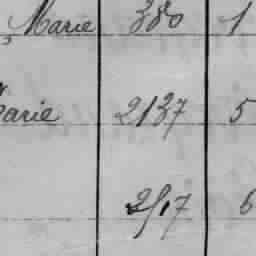 Marie 380 1
Marie 2137 5
2517 6